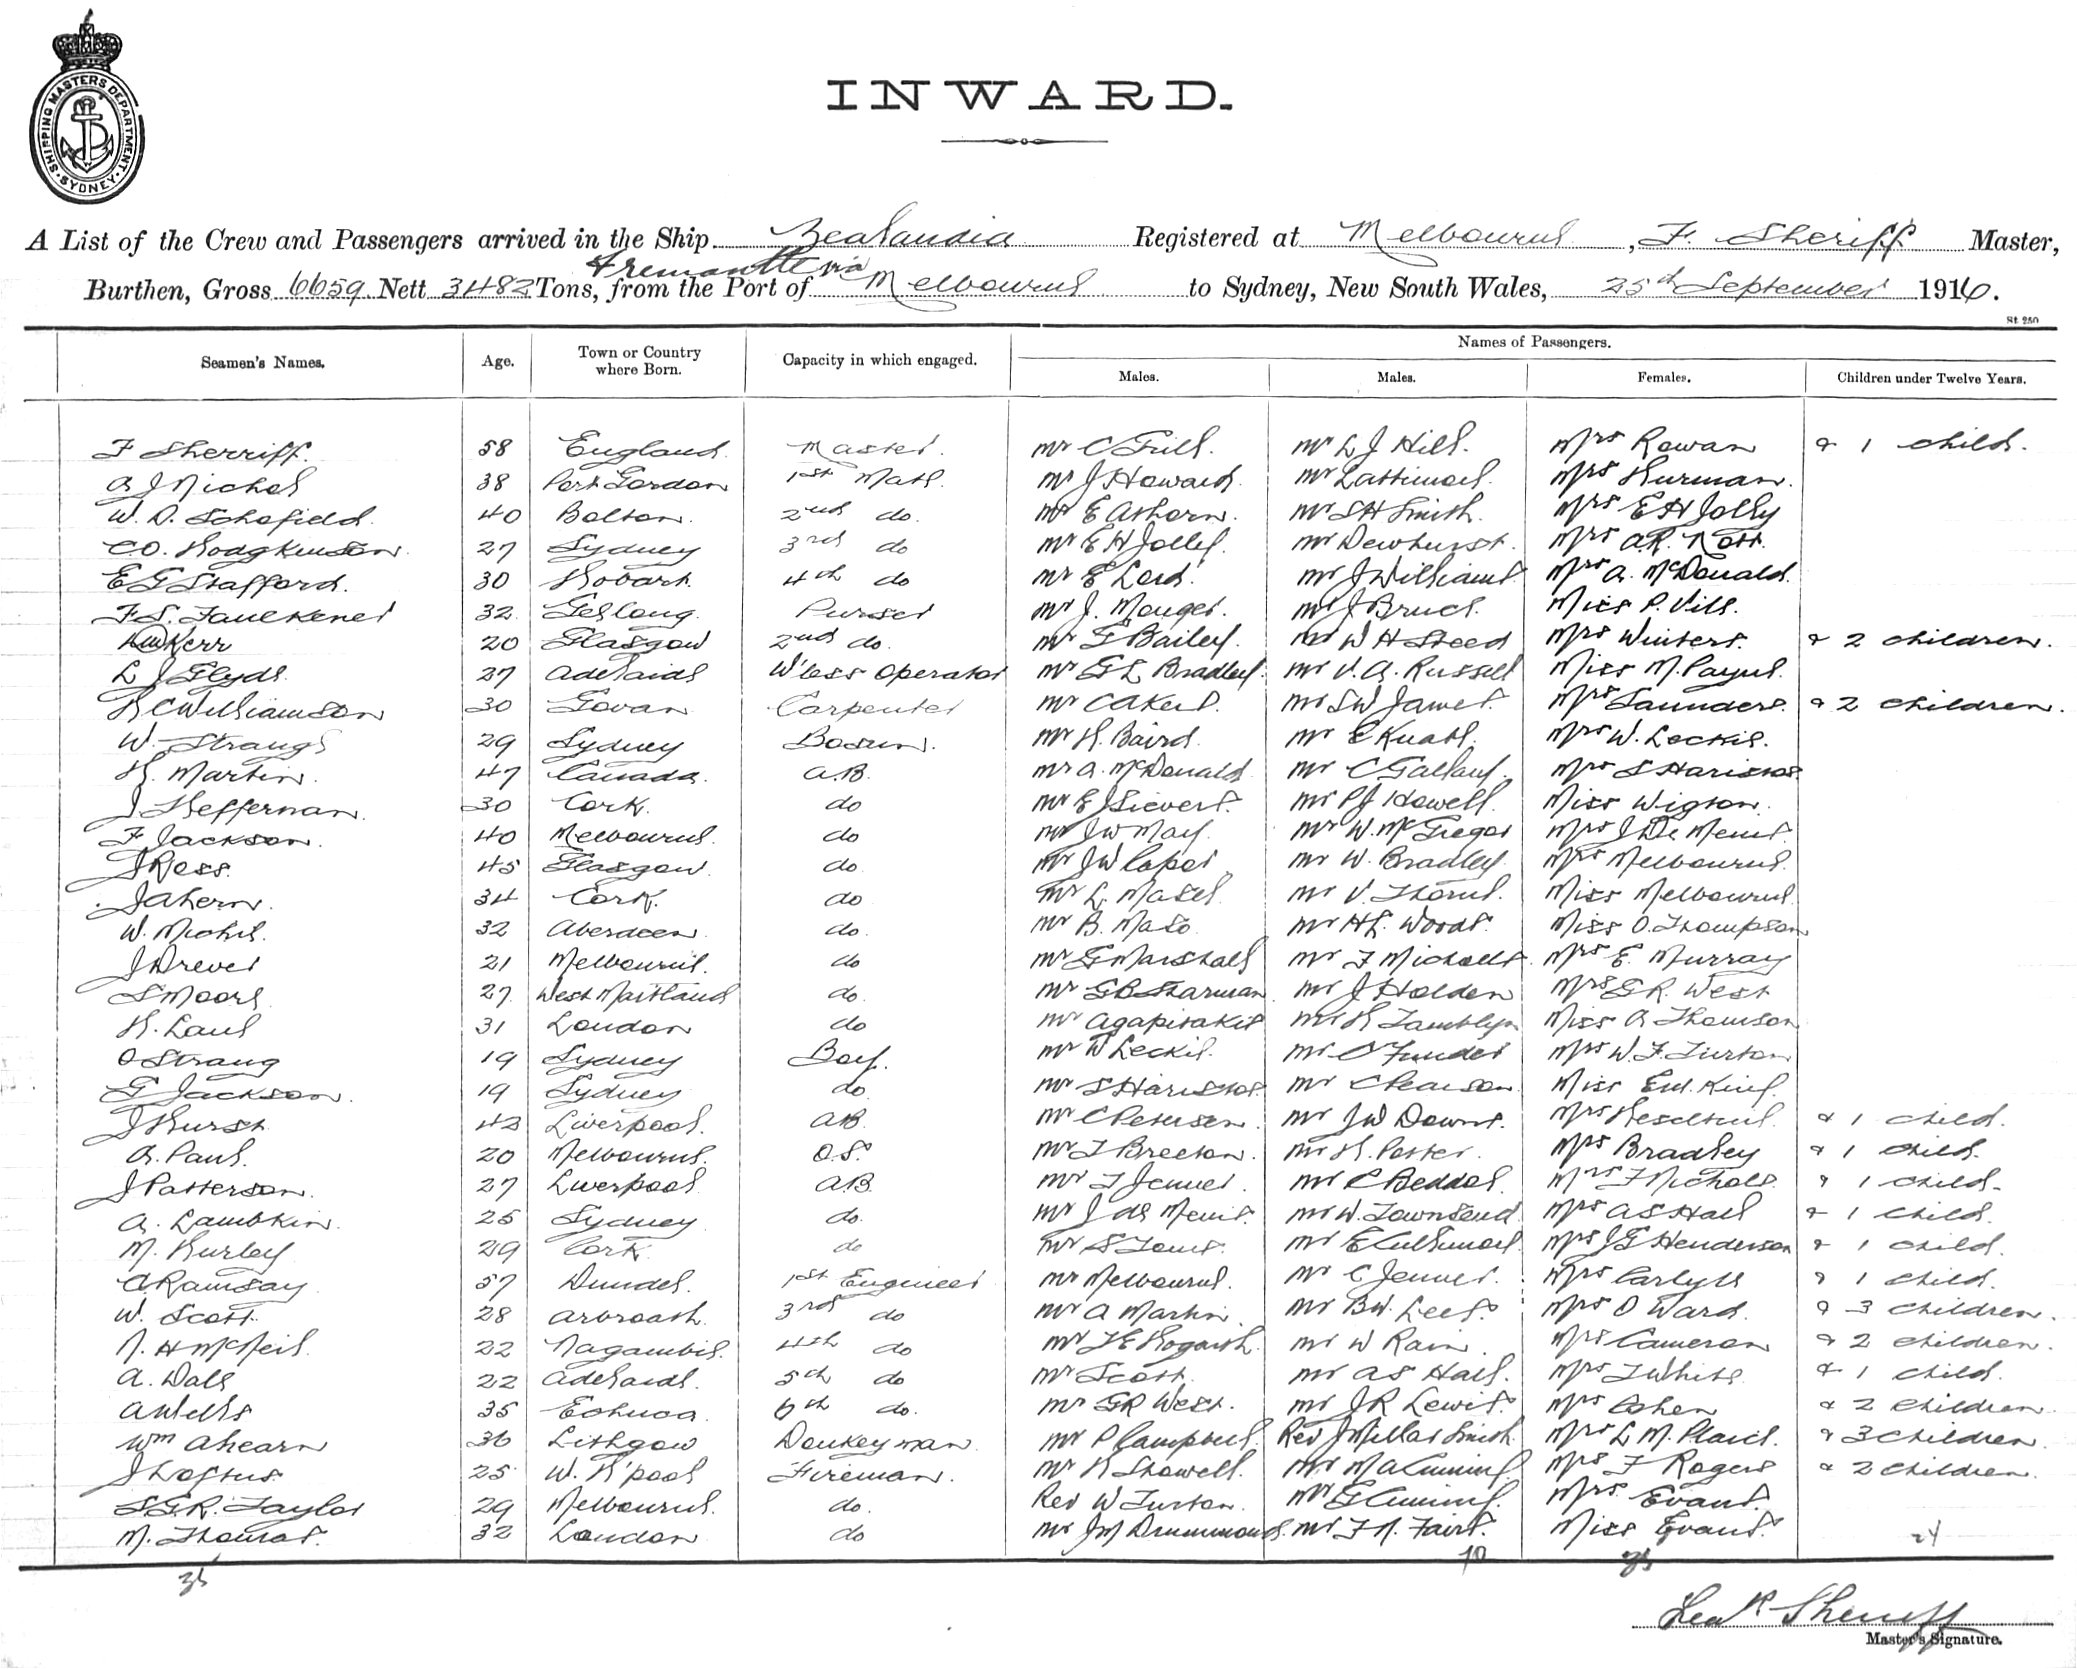 SHIPPING MASTERS DEPARTMENT
SYDNEY
INWARD.
A List of the Crew and Passengers arrived in the Ship Zealandia Registered at Melbourne, F. Sheriff Master,
Fremantle via
Burthen, Gross 6659 Nett 3482 Tons, from the Port of Melbourne to Sydney, New South Wales, 25th September 1916.
St 250
Seamen's Names. Age. Town or Country where Born. Capacity in which engaged. Names of Passengers.
Males. Males. Females. Children under Twelve Years.
F Sherriff. 58 England Master. Mr C Grill. Mr L J Hill. Mrs Rowan & 1 child.
A J Nichol 38 Port Gordon 1st Mate. Mr J Howard. Mr Lattimore. Mrs Hurman.
W. D. Schofield. 40 Bolton. 2nd do. Mr E Ashorn. Mr S H Smith. Mrs E H Jolly
C.O. Hodgkinson. 27 Sydney 3rd do Mr E H Jolley. Mr Dewhurst. Mrs A.R. Nott.
E G Stafford. 30 Hobart. 4th do Mr E Lord. Mr J Williams. Mrs A. McDonald.
F.S. Faulkener 32. Geelong. Purser Mr J. Mauger. Mr J Bruce. Miss P. Vill.
Kerr 20 Glasgow 2nd do. Mr G Bailey. Mr W H Steed Mrs Winters. & 2 children.
L J Glyde. 27 Adelaide W'less Operator Mr G L Bradley. Mr V. A. Russell Miss M. Payne.
H C Williamson 30 Govan Carpenter Mr C Akers. Mr S W James. Mrs Saunders. & 2 children.
W. Strang 29 Sydney Bosun. Mr H. Baird. Mr E Knabe. Mrs W. Leckie.
H. Martin. 47 Canada. A.B. Mr A. McDonald Mr C Gallant. Mrs S Haristos
J Heffernan. 30 Cork. do Mr E J Sievers. Mr P J Howell. Miss Wigton.
F Jackson. 40 Melbourne. do Mr J W May. Mr W. McGregor Mrs J De Menis.
J Ross. 45 Glasgow. do Mr J W Roper Mr W. Bradley. Mrs Melbourne.
J Ahern. 34 Cork. do Mr L. Masel. Mr V. Thorne. Miss Melbourne.
W. Michie. 32 Aberdeen. do. Mr B. Maso Mr H L. Woods. Miss O. Thompson
J Drever 21 Melbourne. do Mr G Marshall Mr F Micholls. Mrs E. Murray
S Moore. 27. West Maitland do. Mr G B Sharman. Mr J Holden Mrs G R. West
H. Lane 31 London do Mr Agapitakis Mr H Tamblyn Miss A Thomson
O Strang 19 Sydney Boy. Mr W Leckie. Mr O Funder Mrs W. F. Turton
G Jackson. 19 Sydney do. Mr S Haristos. Mr C Pearson. Miss Em. King.
J Hurst 43 Liverpool. AB. Mr C Petersen. Mr J W Downs. Mrs Heseltine & 1 child.
A. Paul. 20 Melbourne. O.S. Mr T Breeton. Mr H. Potter. Mrs Bradley & 1 child.
J Patterson. 27 Liverpool A.B. Mr F Jenner. Mr C Beddoe. Mrs F Nicholls. & 1 child.
A. Lambkin. 25 Sydney do. Mr J de Menis. Mr W. Townsend. Mrs A S Hall & 1 child.
M. Hurley 29 Cork do Mr S Toms. Mr E Cullimore. Mrs J G Henderson & 1 child.
C Ramsay 57 Dundee. 1st Engineer Mr Melbourne. Mr C Jenner. Mrs Carlyle & 1 child.
W. Scott 28 Arbroath. 3rd do Mr A Martin. Mr B.W. Lees. Mrs O Ward. & 3 children.
N. H McNeil. 22 Nagambie. 4th do Mr T E Hogarth. Mr W Rain. Mrs Cameron & 2 children.
A. Dall 22 Adelaide. 5th do Mr Scott. Mr A S Hall. Mrs T White. & 1 child.
A Wells 35 Echuca. 6th do. Mr G R West. Mr J R Lewis. Mrs Cohen & 2 children.
Wm Ahearn 36 Lithgow Donkeyman. Mr P Campbell. Rev J Millar Smith. Mrs L. M. Place. & 3 children.
J Loftus. 25 W. H'pool Fireman. Mr H Showell. Mr M A Cuming. Mrs F Rogers & 2 children.
S.G.R. Taylor 29 Melbourne. do. Rev W Turton. Mr G Cuming. Mrs. Evans.
M. Thomas. 32 London do Mr J M Drummond. Mr F N. Fairs. Miss Evans. 24
35 70 35
Geo H Sherriff
Master's Signature.